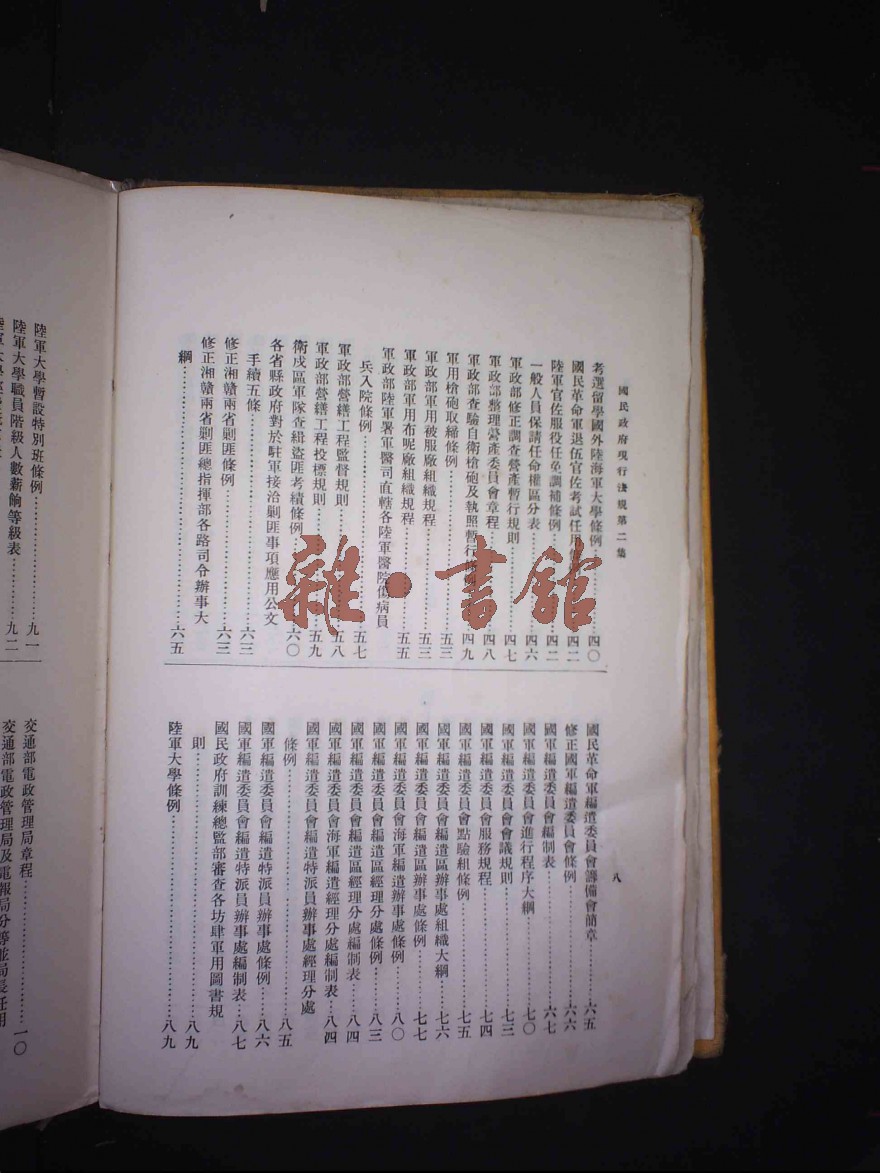 國民政府現行法規第二集
八
考選留學國外陸海軍大學條例……四〇
國民革命軍退伍官佐考試任用……四二
陸軍官佐服役任免調補條例……四二
一般人員保請任命權區分表……四六
軍政部修正調查營產暫行規則……四七
軍政部整理營產委員會章程……四八
軍政部查驗自衛槍砲及執照暫行……四九
軍用槍砲取締條例……五三
軍政部軍用被服廠組織規程……五三
軍政部軍用布呢廠組織規程……五五
軍政部陸軍署軍醫司直轄各陸軍醫院傷病員
兵入院條例……五七
軍政部營繕工程監督規則……五八
軍政部營繕工程投標規則……五九
衛戍區軍隊查緝盜匪考績條例……六〇
各省縣政府對於駐軍接洽剿匪事項應用公文
手續五條……六三
修正湘贛兩省剿匪條例……六三
修正湘贛兩省剿匪總指揮部各路司令辦事大
綱……六五
國民革命軍編遣委員會籌備會簡章……六五
修正國軍編遣委員會條例……六六
國軍編遣委員會編制表……六七
國軍編遣委員會進行程序大綱……七〇
國軍編遣委員會會議規則……七三
國軍編遣委員會服務規程……七四
國軍編遣委員會點驗組條例……七五
國軍編遣委員會編遣區辦事處組織大綱……七六
國軍編遣委員會編遣區辦事處條例……七七
國軍編遣委員會海軍編遣辦事處條例……八〇
國軍編遣委員會編遣區經理分處條例……八三
國軍編遣委員會編遣區經理分處編制表……八四
國軍編遣委員會海軍編遣經理分處編制表……八四
國軍編遣委員會編遣特派員辦事處經理分處
條例……八五
國軍編遣委員會編遣特派員辦事處條例……八六
國軍編遣委員會編遣特派員辦事處編制表……八七
國民政府訓練總監部審查各坊肆軍用圖書規
則……八九
陸軍大學條例……八九
陸軍大學暫設特別班條例……九一
陸軍大學職員階級人數薪餉等級表……九二
交通部電政管理局章程……一〇
交通部電政管理局及電報局分等並局長任用
雜·書館